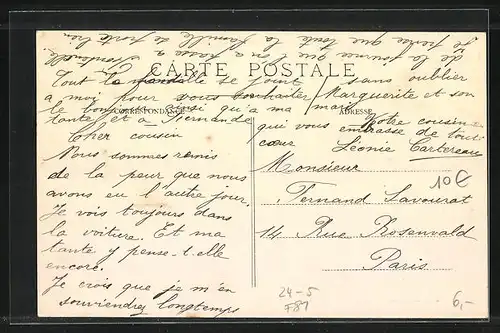 CARTE POSTALE
CORRESPONDANCE
ADRESSE
Cher cousin
Nous sommes remis
de la peur que nous
avons eu l'autre jour.
Je vois toujours dans
la voiture. Et ma
tante y pense-t-elle
encore.
Je crois que je m'en
souviendrez longtemps
de la que l'on a
je pense que toute la famille se porte bien
Tout la se joint
a moy pour vous souhaiter
le bonjour qu'a ma
tante et a Fernande
sans oublier
Marguerite et son
mari
Votre cousine
qui vous embrasse de tout
cœur Léonie
Monsieur
Fernand Savourat
14 Rue Rosenvald
Paris
10€
24-5
F81
6,-